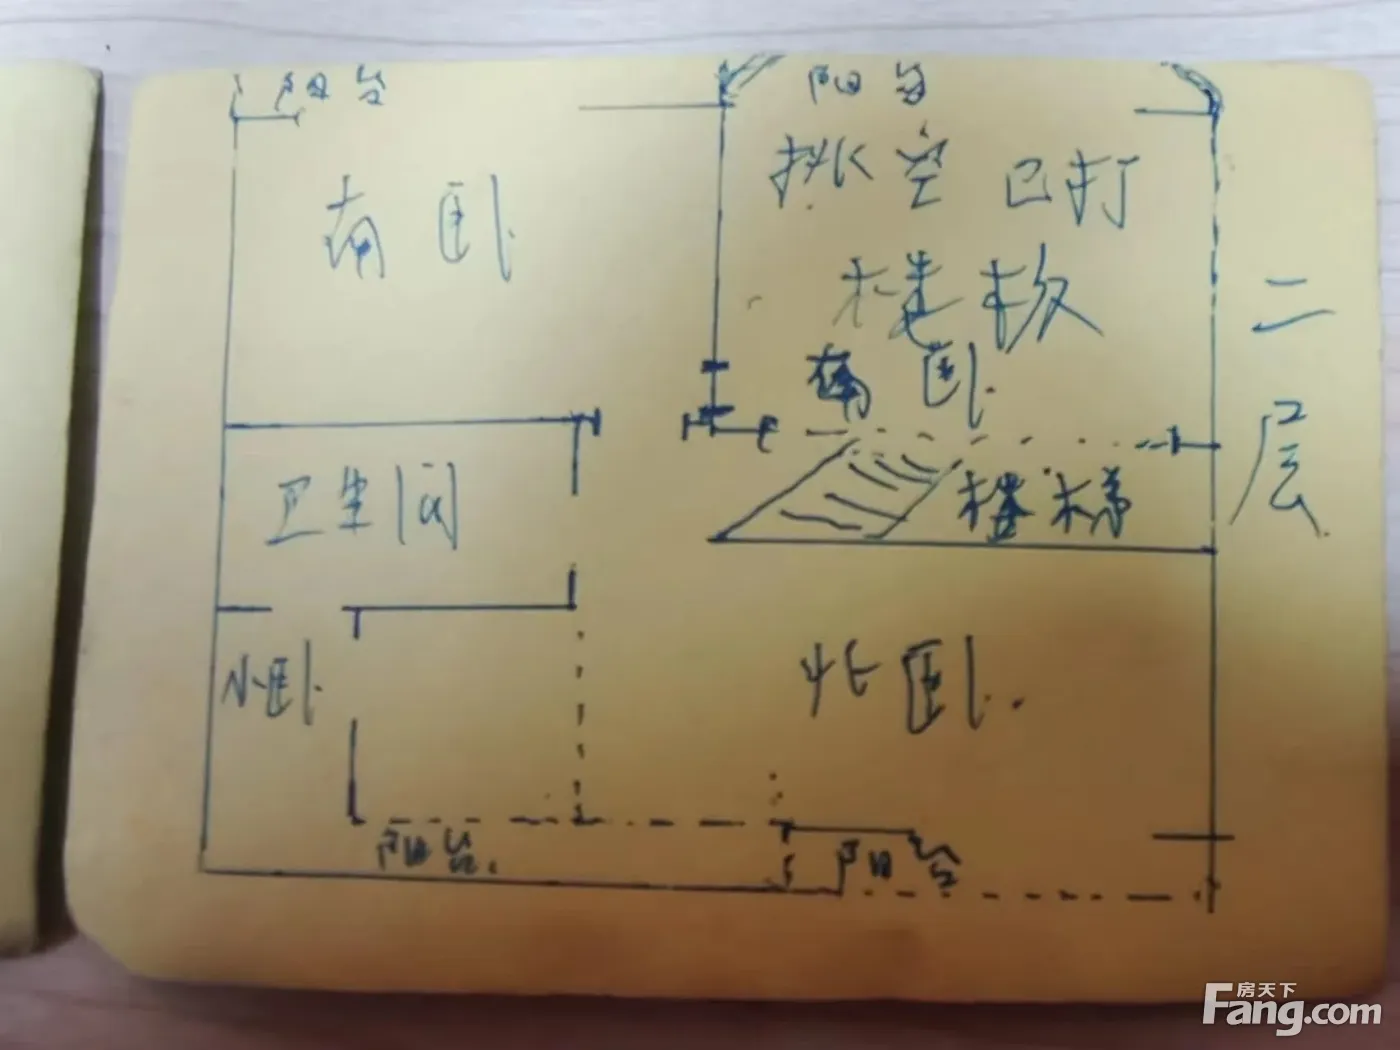 阳台
阳台
挑空 已打
楼板
南卧
南卧
二层
卫生间
楼梯
小卧
北卧.
阳台.
阳台
房天下
Fang.com